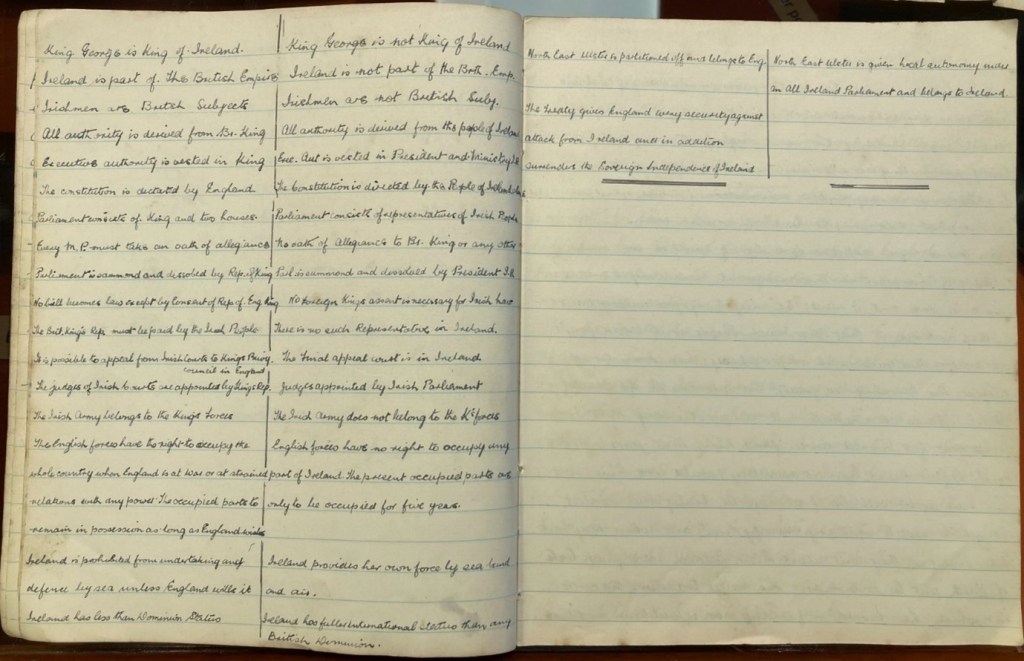 King George is King of Ireland.
Ireland is part of The British Empire
Irishmen are British Subjects
All authority is derived from Br. King
Executive authority is vested in King
The constitution is dictated by England
Parliament consists of King and two houses.
Every M.P. must take an oath of allegiance
Parliment is sammond and desolved by Rep. of King
No bill becomes law except by Consent of Rep of. Eng King
The Brit. King's Rep. must be paid by the Irish People
It is possible to appeal from Irish Courts to Kings Privy.
Council in England
The judges of Irish Courts are appointed by Kings Rep.
The Irish Army belongs to the Kings Forces
The English forces have the right to occupy the
whole country when England is at war or at strained
relations with any power. The occupied parts to
remain in possession as long as England wishes
Ireland is prohibited from undertaking any
defence by sea unless England wills it
Ireland has less than Dominion Status
King George is not King of Ireland
Ireland is not part of the Brth. Emp.
Irishmen are not British Subj.
All authority is derived from the people of Ireland
Exe. Aut is vested in President and Ministry
The Constitution is directed by the People of Ireland
Parliament consists of representatives of Irish People
No oath of Allegiance to Br. King or any other
Parl is sammond and dissolved by President
No foreign Kings assent is necessary for Irish law
There is no such Representative in Ireland
The Final appeal court is in Ireland
Judges appointed by Irish Parliament
The Irish Army does not belong to the Ks forces
English forces have no right to occupy any
part of Ireland. The present occupied parts are
only to be occupied for five years.
Ireland provides her own force by sea land
and air.
Ireland has fuller International Status than any
British Dominion.
North East Ulster is partitioned off and belongs to Eng.
The Treaty gives England every security against
attack from Ireland and in addition
surrenders the Sovereign Independence of Ireland
North East Ulster is given local autonomy under
an All Ireland Parliament and belongs to Ireland.